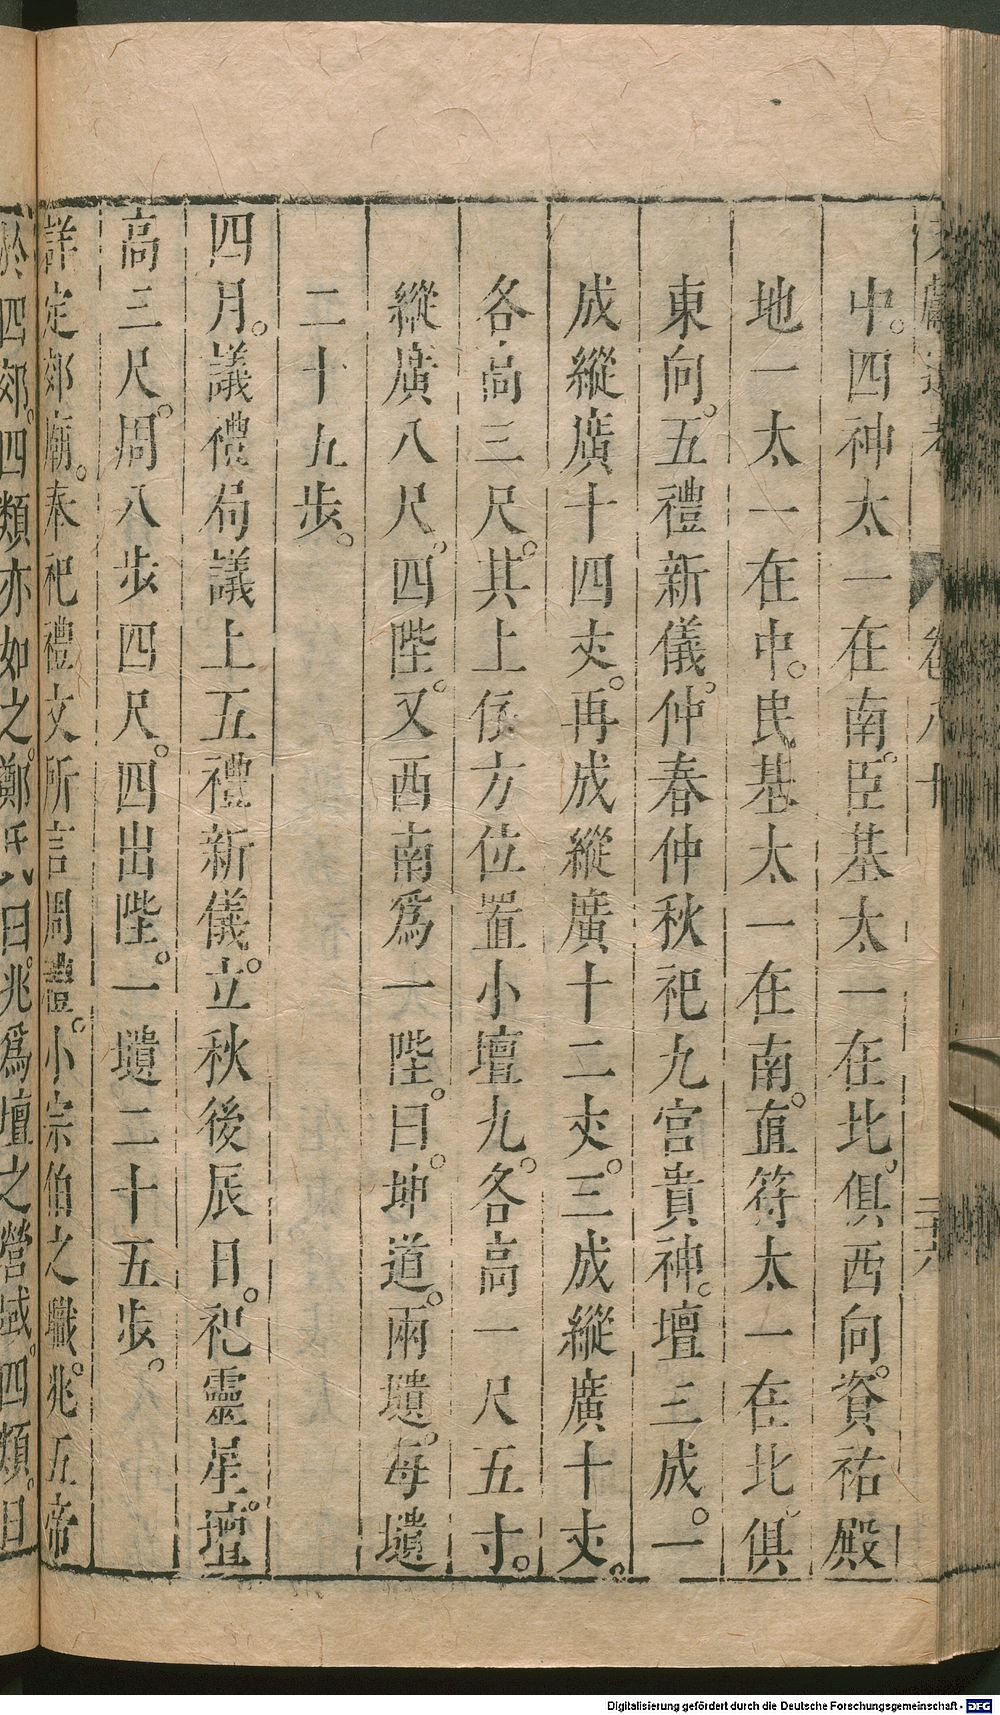 文獻通考 卷八十 二十六
中。四神太一在南。臣基太一在北。俱西向。資祐殿
地一太一在中。民基太一在南。直符太一在北。俱
東向。五禮新儀。仲春仲秋祀九宮貴神。壇三成。一
成縱廣十四丈。再成縱廣十二丈。三成縱廣十丈。
各高三尺。其上依方位置小壇九。各高一尺五寸。
縱廣八尺。四陛。又西南爲一陛。曰。坤道。兩壝。每壝
二十五步。
四月。議禮局議上五禮新儀。立秋後辰日。祀靈星。壇
高三尺。周八步四尺。四出陛。一壝二十五步。
詳定郊廟。奉祀禮文所言周禮。小宗伯之職。兆五帝
於四郊。四類亦如之。鄭氏曰。兆爲壇之營域。四類。日
Digitalisierung gefördert durch die Deutsche Forschungsgemeinschaft - DFG